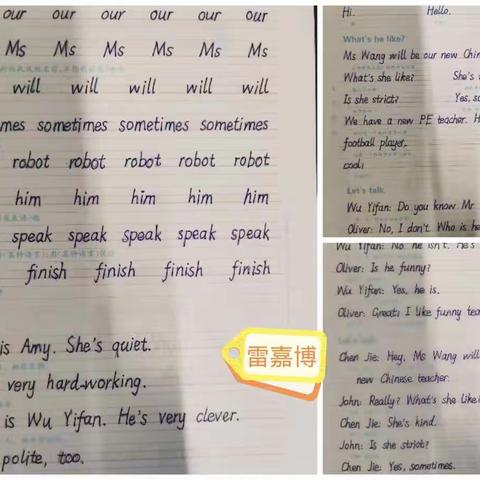 our our our our our
Ms Ms Ms Ms Ms Ms
will will will will will
mes sometimes sometimes sometimes
robot robot robot robot robot
him him him him him
speak speak speak speak speak
finish finish finish finish
is Amy. She's quiet.
very hard-working.
is Wu Yifan. He's very clever.
polite, too.
雷嘉博
Hi. Hello.
What's he like?
Ms Wang will be our new Chin
What's she like? She's
Is she strict? Yes, so
We have a new PE teacher. H
football player.
cool!
Let's talk
Wu Yifan: Do you know Mr
Oliver: No, I don't. Who is he
Wu Yifan: No he isn't. He's
Oliver: Is he funny?
Wu Yifan: Yes, he is.
Oliver: Great! I like funny tea
Chen Jie: Hey, Ms Wang will
new Chinese teacher.
John: Really? What's she like
Chen Jie: She's kind.
John: Is she strict?
Chen Jie: Yes, sometimes.